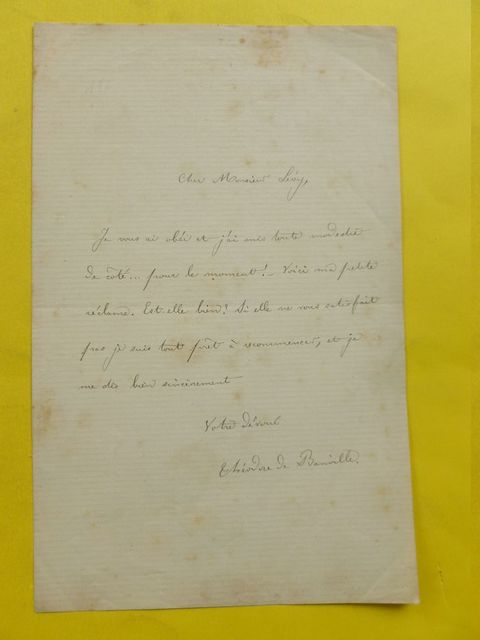 Cher Monsieur Lévy,
Je vous ai obéi et j'ai mis toute modestie
de côté... pour le moment! – Voici ma petite
réclame. Est-elle bien? Si elle ne vous satisfait
pas je suis tout prêt à recommencer, et je
me dis bien sincèrement
Votre dévoué
Théodore de Banville.